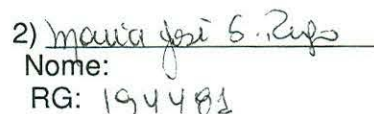 2) Maria José S. Rufo
Nome:
RG: 194481